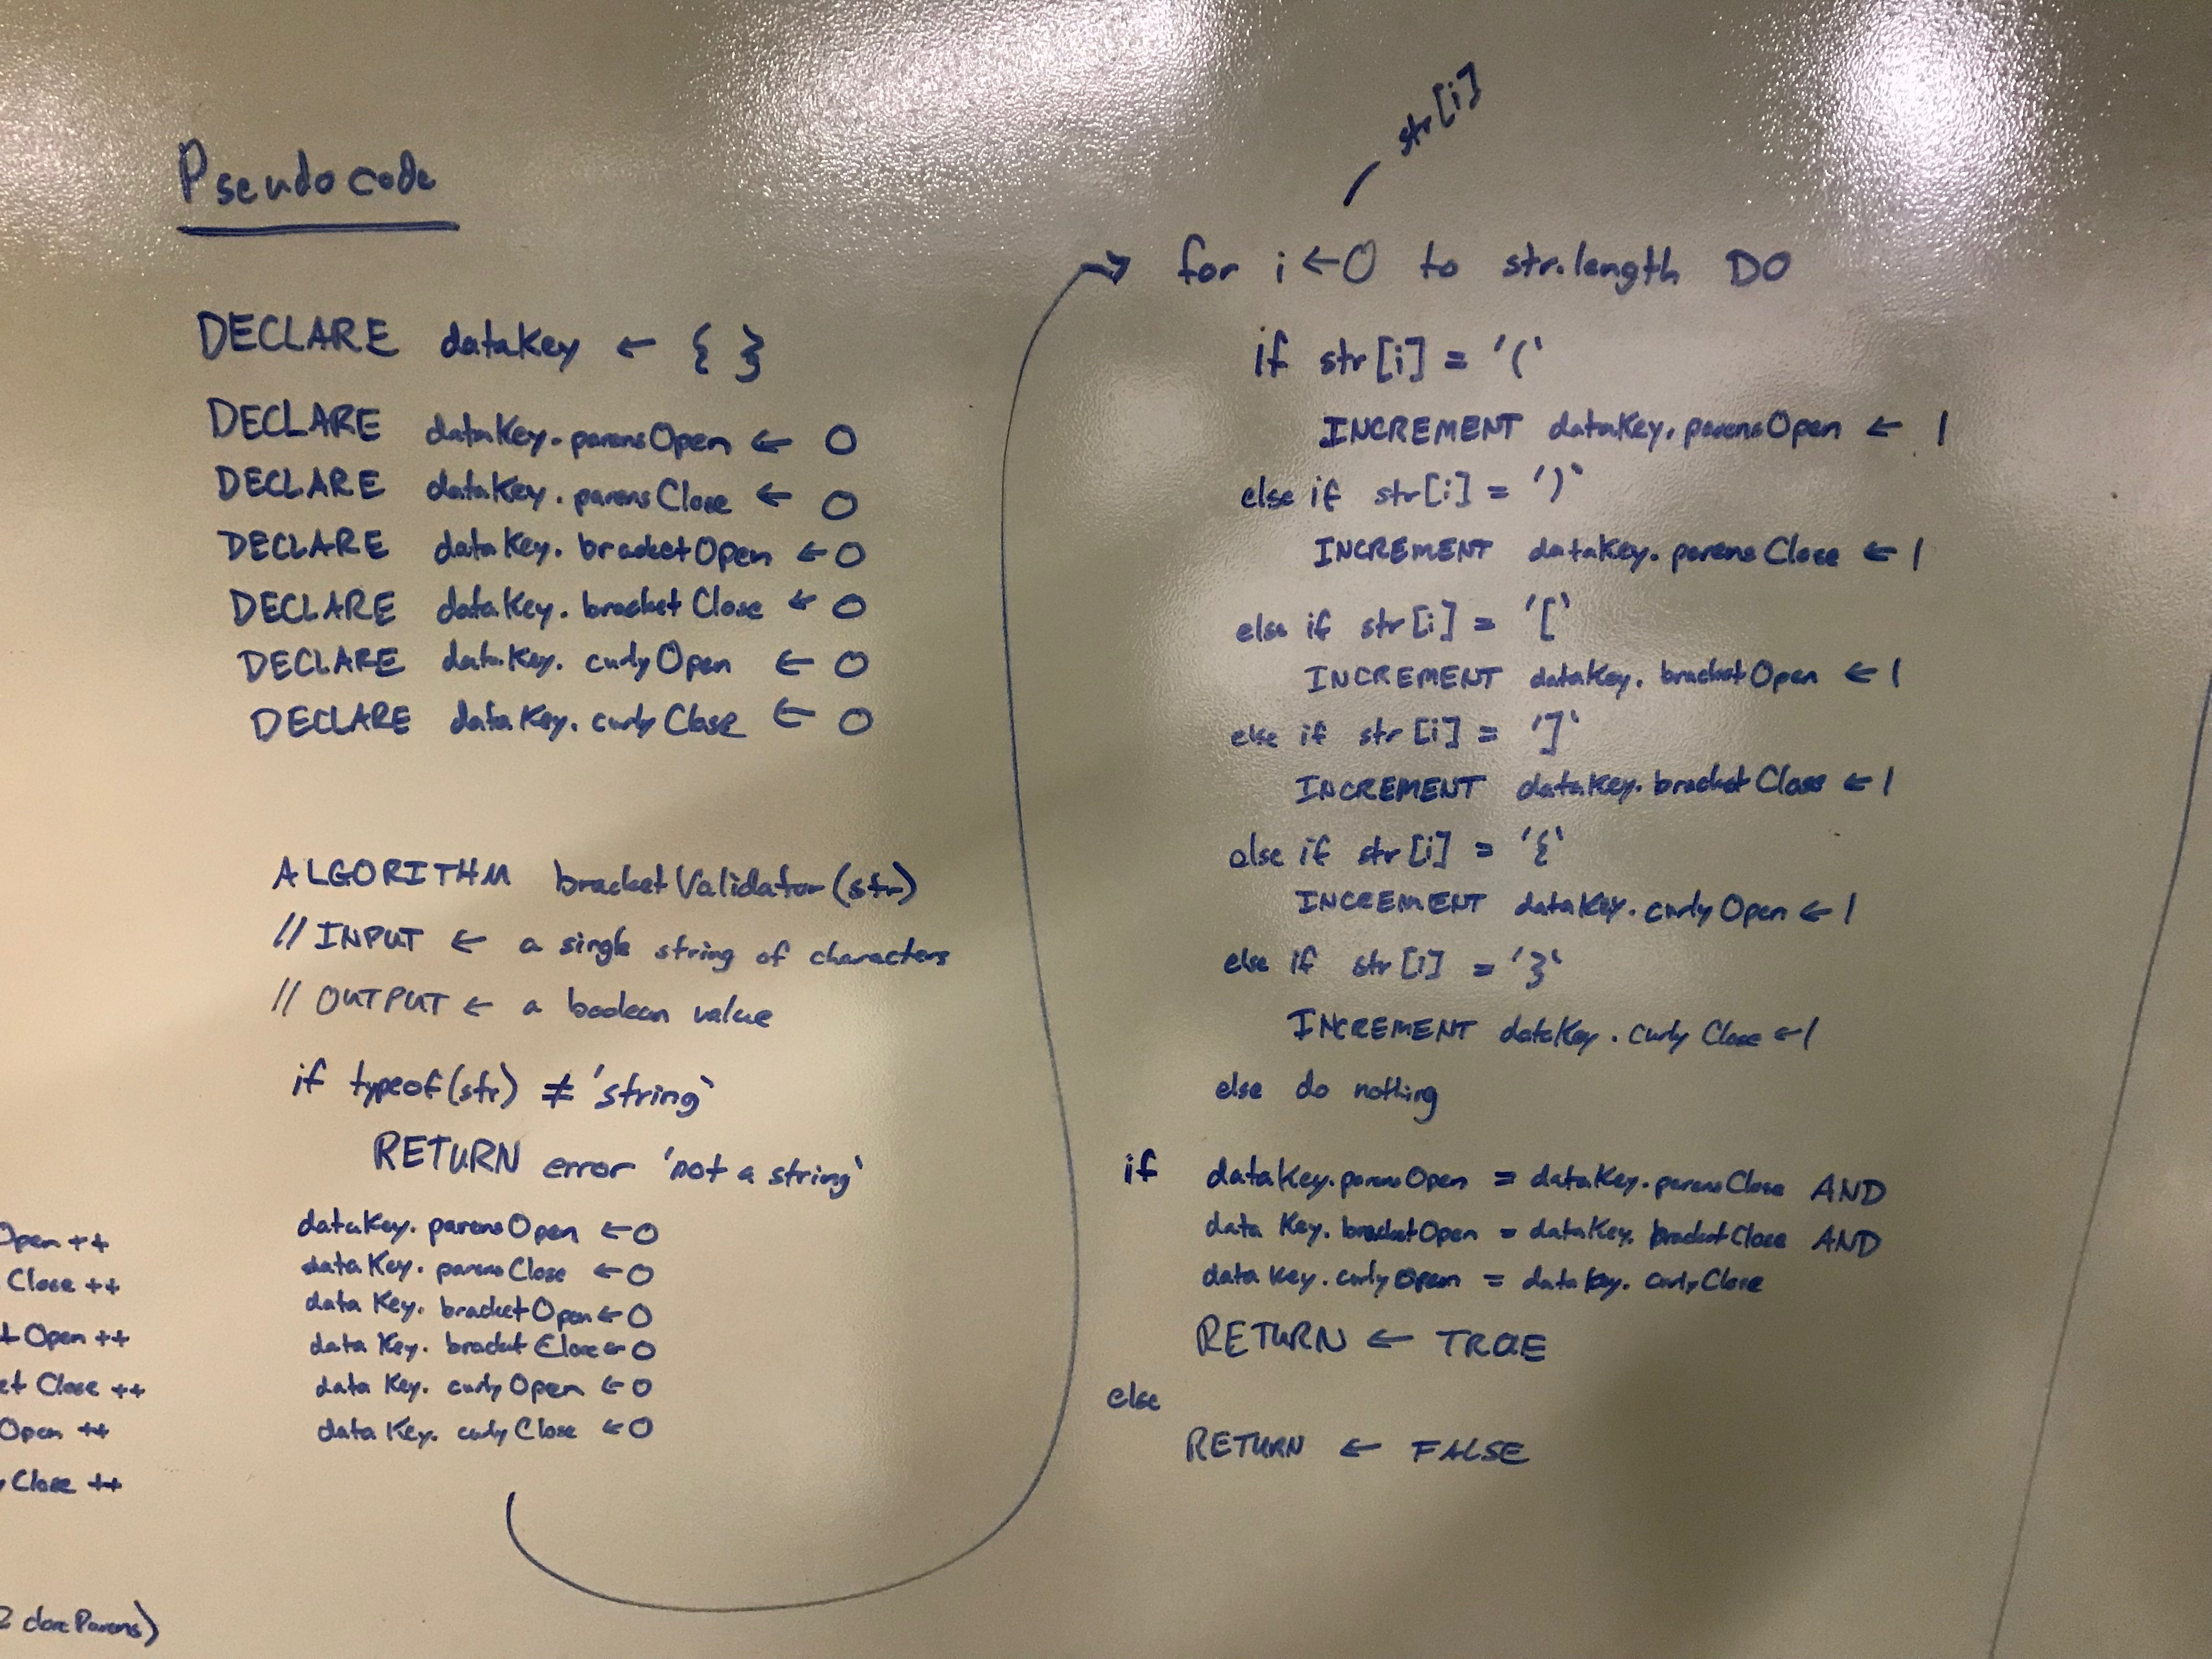 Pseudocode
DECLARE dataKey ← { }
DECLARE dataKey.parensOpen ← 0
DECLARE dataKey.parensClose ← 0
DECLARE dataKey.bracketOpen ← 0
DECLARE dataKey.bracketClose ← 0
DECLARE dataKey.curlyOpen ← 0
DECLARE dataKey.curlyClose ← 0
ALGORITHM bracketValidator(str)
// INPUT ← a single string of characters
// OUTPUT ← a boolean value
if typeof(str) ≠ 'string`
RETURN error 'not a string`
dataKey.parensOpen ← 0
dataKey.parensClose ← 0
dataKey.bracketOpen ← 0
dataKey.bracketClose ← 0
dataKey.curlyOpen ← 0
dataKey.curlyClose ← 0
Open ++
Close ++
Open ++
et Close ++
Open ++
Close ++
closeParens)
str[i]
for i ← 0 to str.length DO
if str[i] = '(`
INCREMENT dataKey.parensOpen ← 1
else if str[i] = ')`
INCREMENT dataKey.parensClose ← 1
else if str[i] = '[`
INCREMENT dataKey.bracketOpen ← 1
else if str[i] = ']`
INCREMENT dataKey.bracketClose ← 1
else if str[i] = '{`
INCREMENT dataKey.curlyOpen ← 1
else if str[i] = '}`
INCREMENT dataKey.curlyClose ← 1
else do nothing
if dataKey.parensOpen = dataKey.parensClose AND
dataKey.bracketOpen = dataKey.bracketClose AND
dataKey.curlyOpen = dataKey.curlyClose
RETURN ← TRUE
else
RETURN ← FALSE